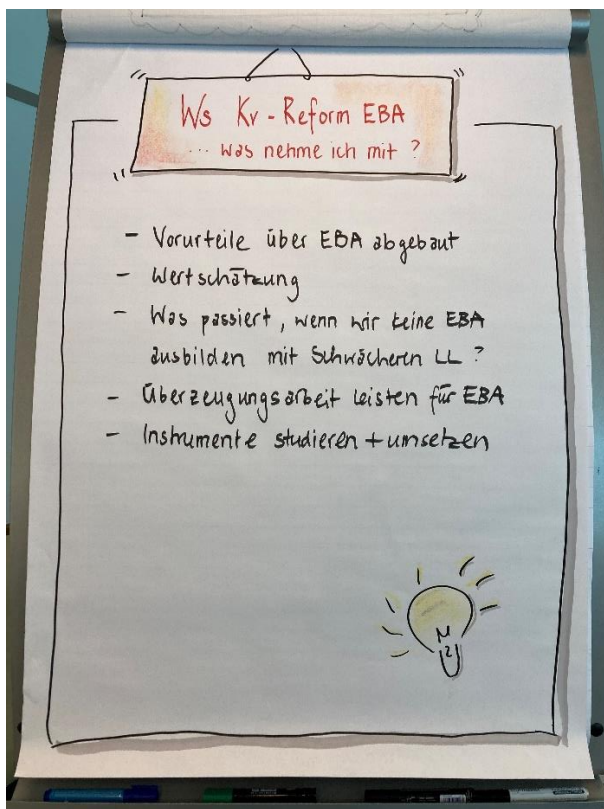 Ws Kv-Reform EBA
... was nehme ich mit ?
- Vorurteile über EBA abgebaut
- Wertschätzung
- Was passiert, wenn wir keine EBA
ausbilden mit Schwächeren LL ?
- Überzeugungsarbeit leisten für EBA
- Instrumente studieren + umsetzen